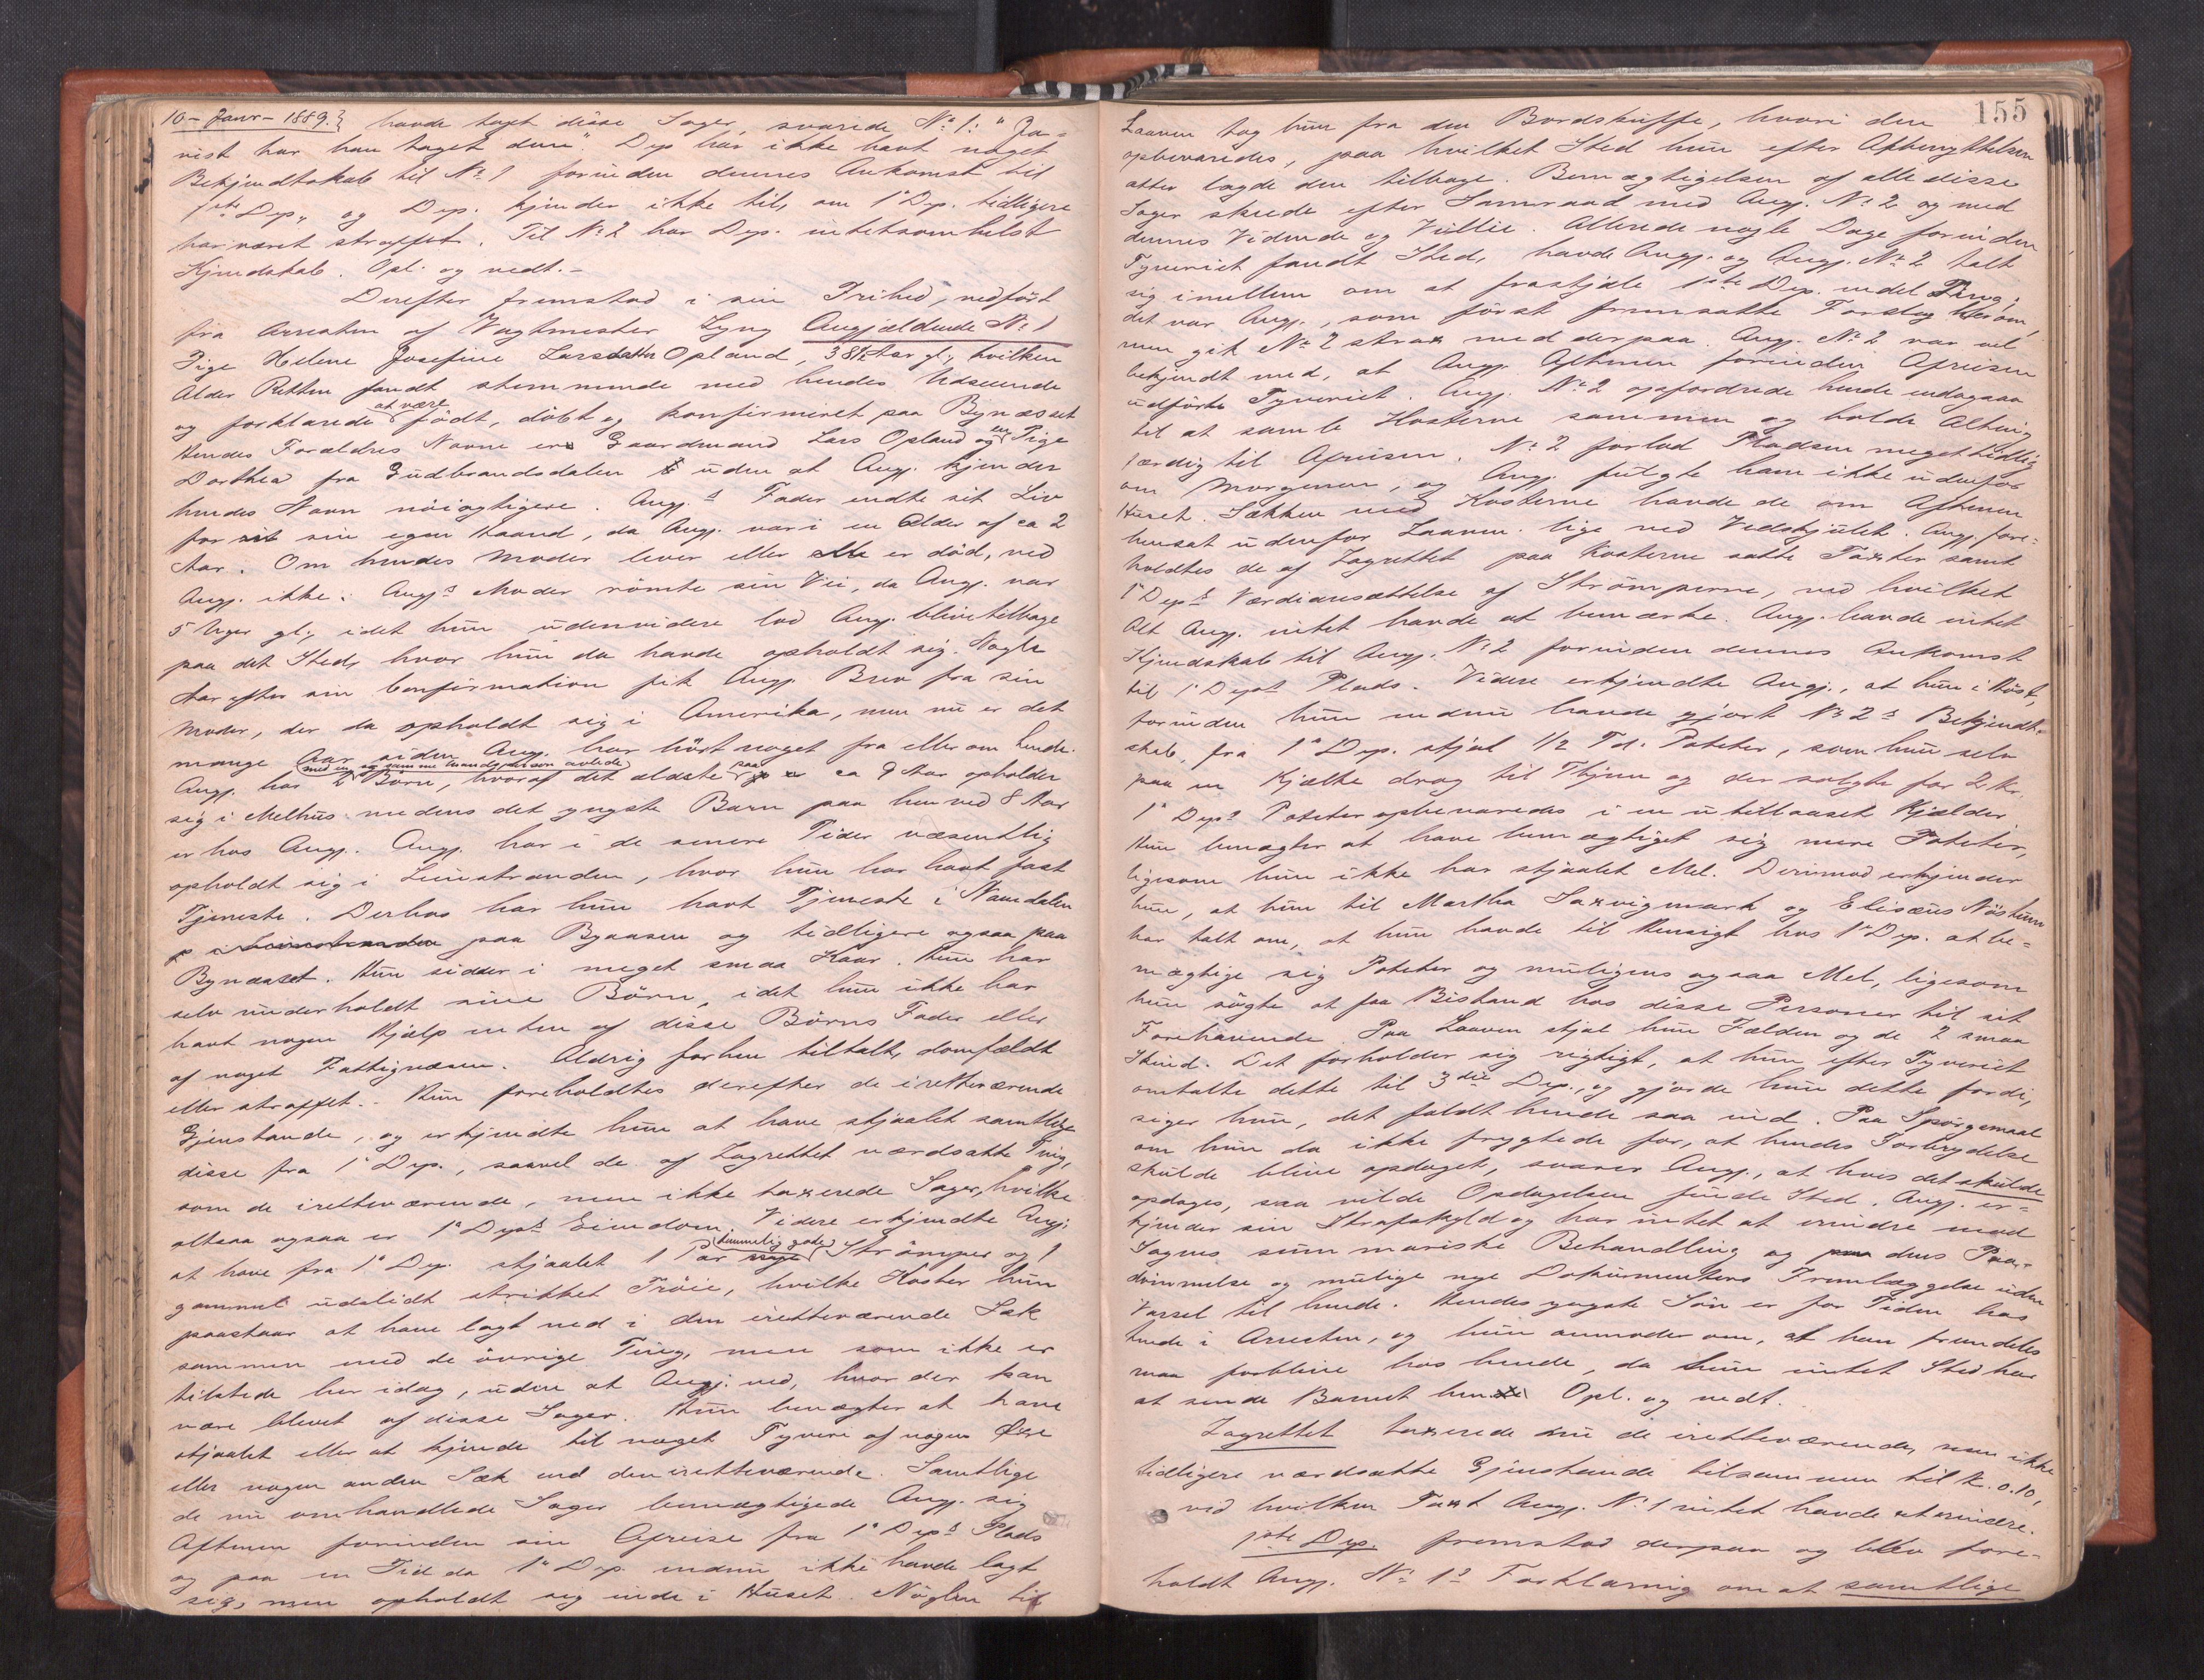 10 – Janr – 1889. havde taget disse Sager, svarede No 1: "Ja-
vist har han taget dem". Dep har ikke havt noget
Bekjendtskab til No 1 forinden dennes Ankomst til
1ste Dep., og Dep. kjender ikke til, om 1ª Dep. tidligere
har været straffet. Til No 2 har Dep. intetsomhelst
Kjendskab. Opl. og vedt. –
Derefter fremstod i sin Frihed, nedført
fra Arresten af Vagtmester Lyng Angjældende No 1
Pige Helene Josefine Larsdatter Opland, 38½ Aar gl., hvilken
Alder Retten fandt stemmende med hendes Udseende
og forklarede at være født, døbt og konfirmeret paa Bynæsset
Hendes Forældres Navne er Gaardmand Lars Opland og en Pige
Dorthea fra Gudbrandsdalen uden at Ang. kjender
hendes Navn nøiagtigere. Angj.s Fader endte sit Liv
for sin egen Haand, da Angj. var i en Alder af ca 2
Aar. Om hendes Moder lever eller er død, ved
Angj. ikke. Angj.s Moder rømte sin Vei, da Angj. var
5 Uger gl., idet hun udenvidere lod Angj. blive tilbage
paa det Sted, hvor hun da havde opholdt sig. Nogle
Aar efter sin Confirmation fik Angj. Brev fra sin
Moder, der da opholdt sig i Amerika, men nu er det
mange Aar siden Angj. har hørt noget fra eller om hende.
Angj. har 2 med en og samme Mandsperson avlede Børn, hvoraf det ældste paa ca 9 Aar opholder
sig i Melhus medens det yngste Barn paa henved 8 Aar
er hos Angj. Angj. har i de senere Tider væsentlig
opholdt sig i Leinstranden, hvor hun har havt fast
Tjeneste. Derhos har hun havt Tjeneste i Namdalen
paa Byaasen og tidligere ogsaa paa
Bynæsset. Hun sidder i meget smaa Kaar. Hun har
selv underholdt sine Børn, idet hun ikke har
havt nogen Hjælp enten af disse Børns Fader eller
af noget Fattigvæsen. Aldrig forhen tiltalt, domfældt
eller straffet. – Hun foreholdtes derefter de iretteværende
Gjenstande, og erkjendte hun at have stjaalet samtlige
disse fra 1ª Dep., saavel de af Lagrettet værdsatte Ting,
som de iretteværende, men ikke taxerede Sager, hvilke
altsaa ogsaa er 1ª Deps Eiendom. Videre erkjendte Angj.
at have fra 1ª Dep. stjaalet 1 Par temmelig gode Strømper og 1
gammel udslidt strikket Trøie, hvilke Koster hun
paastaar at have lagt ned i den iretteværende Sæk
sammen med de øvrige Ting, men som ikke er
tilstede her idag, uden at Angj. ved, hvor der kan
være blevet af disse Sager. Hun benægter at have
stjaalet eller at kjende til noget Tyveri af nogen Øxe
eller nogen anden Sæk end den iretteværende. Samtlige
de nu omhandlede Sager bemægtigede Angj. sig
Aftenen forinden sin Afreise fra 1ª Deps Plads
og paa en Tid da 1ª Dep. endnu ikke havde lagt
sig, men opholdt sig inde i Huset. Nøglen til
155
Laaven tog hun fra den Bordskuffe, hvori den
opbevaredes, paa hvilket Sted hun efter Afbenyttelsen
atter lagde den tilbage. Bemægtigelsen af alle disse
Sager skede efter Samraad med Angj. No 2 og med
dennes Vidende og Villie. Allerede nogle Dage forinden
Tyveriet fandt Sted, havde Angj. og Angj. No 2 talt
sig imellem om at frastjæle 1ste Dep. endel Ting;
det var Angj., som først fremsatte Forslag herom,
men gik No 2 strax med derpaa. Angj. No 2 var vel
bekjendt med, at Angj. Aftenen forinden Afreisen
udførte Tyveriet. Angj. No 2 opfordrede hende endogsaa
til at samle Kosterne sammen og holde Alting
færdig til Afreisen. No 2 forlod Pladsen meget tidlig
om Morgenen, og Angj. fulgte ham ikke udenfor
Huset. Sækken med Kosterne havde de om Aftenen
hensat udenfor Laaven lige ved Vedskjulet. Angj. fore-
holdtes de af Lagrettet paa Kosterne satte Taxter samt
1ª Deps Værdiansættelse af Strømperne, ved hvilket
Alt Angj. intet havde at bemærke. Angj. havde intet
Kjendskab til Angj. No 2 forinden dennes Ankomst
til 1ª Deps Plads. Videre erkjendte Angj., at hun i Høst,
forinden hun endnu havde gjort No 2s Bekjendt-
skab, fra 1ª Dep. stjal ½ Td. Poteter, som hun selv
paa en Kjælke drog til Thjem og der solgte for 2 Kr.
1ª Deps Poteter opbevaredes i en utillaaset Kjælder.
Hun benægter at have bemægtiget sig mere Poteter,
ligesom hun ikke har stjaalet Mel. Derimod erkjender
hun, at hun til Martha Saxvigmark og Elisæus Nøstum
har talt om, at hun havde til Hensigt hos 1ª Dep. at be-
mægtige sig Poteter og muligens ogsaa Mel, ligesom
hun søgte at faa Bistand hos disse Personer til sit
Forehavende. Paa Laaven stjal hun Fælden og de 2 smaa
Skind. Det forholder sig rigtigt, at hun efter Tyveriet
omtalte dette til 3die Dep., og gjorde hun dette fordi,
siger hun, det faldt hende saa ind. Paa Spørgsmaal
om hun da ikke frygtede for, at hendes Forbrydelse
skulde blive opdaget, svarer Angj., at hvis det skulde
opdages, saa vilde Opdagelsen finde Sted. Angj. er-
kjender sin Strafskyld og har intet at erindre mod
Sagens summariske Behandling og dens Paa-
dømmelse og mulige nye Dokumenters Fremlæggelse uden
Varsel til hende. Hendes yngste Søn er for Tiden hos
hende i Arresten, og hun anmoder om, at han fremdeles
maa forblive hos hende, da hun intet Sted har
at sende Barnet hen. Opl. og vedt.
Lagrettet taxerede nu de iretteværende, men ikke
tidligere værdsatte Gjenstande tilsammen til Kr. 0.10,
ved hvilken Taxt Angj. No 1 intet havde at erindre.
1ste Dep. fremstod derpaa og blev fore-
holdt Angj. No 1s Forklaring om at samtlige